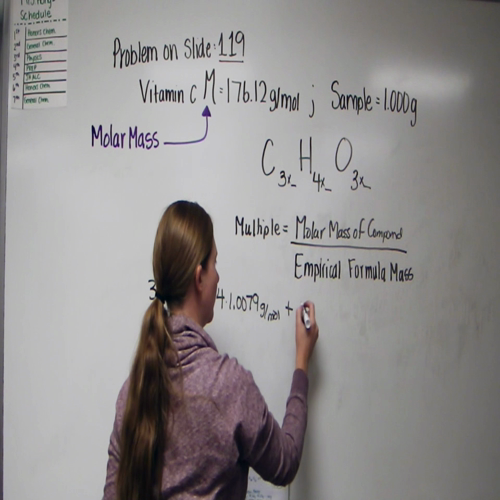 Schedule
Honors Chem.
General Chem.
Physics
Honors Chem.
General Chem.
Problem on Slide: 119
Vitamin C M = 176.12 g/mol ; Sample = 1.000g
Molar Mass
C3x_ H4x_ O3x_
Multiple = Molar Mass of Compound
Empirical Formula Mass
3 4·1.0079 g/mol +